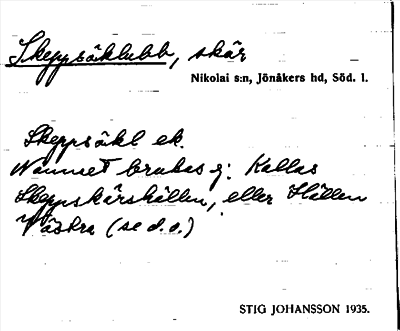 Skeppsäklubb, skär
Nikolai s:n, Jönåkers hd, Söd. l.
Skeppsäkl ek.
Namnet brukas ej: Kallas
Skeppskärshällen, eller Hällen
Västra (se d.o.)
STIG JOHANSSON 1935.